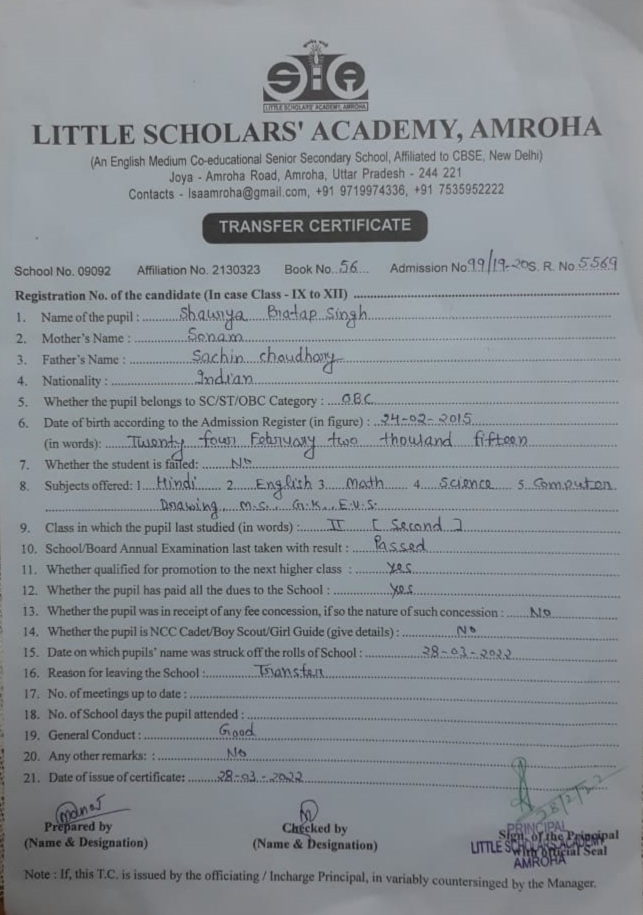 SlA
LITTLE SCHOLARS' ACADEMY, AMROHA
LITTLE SCHOLARS' ACADEMY, AMROHA
(An English Medium Co-educational Senior Secondary School, Affiliated to CBSE, New Delhi)
Joya - Amroha Road, Amroha, Uttar Pradesh - 244 221
Contacts - lsaamroha@gmail.com, +91 9719974336, +91 7535952222
TRANSFER CERTIFICATE
School No. 09092 Affiliation No. 2130323 Book No. 56 Admission No 99/19-20 S. R. No 5569
Registration No. of the candidate (In case Class - IX to XII)
1. Name of the pupil : Shaurya Pratap Singh
2. Mother's Name : Sonam
3. Father's Name : Sachin Choudhary
4. Nationality : Indian
5. Whether the pupil belongs to SC/ST/OBC Category : OBC
6. Date of birth according to the Admission Register (in figure) : 24-02-2015
(in words): Twenty four February two thousand fifteen
7. Whether the student is failed: No
8. Subjects offered: 1 Hindi 2 English 3 Math 4 Science 5 Computer
Drawing, M.S., G.K., E.V.S.
9. Class in which the pupil last studied (in words) : II [ Second ]
10. School/Board Annual Examination last taken with result : Passed
11. Whether qualified for promotion to the next higher class : Yes
12. Whether the pupil has paid all the dues to the School : Yes
13. Whether the pupil was in receipt of any fee concession, if so the nature of such concession : No
14. Whether the pupil is NCC Cadet/Boy Scout/Girl Guide (give details) : No
15. Date on which pupils' name was struck off the rolls of School : 28-03-2022
16. Reason for leaving the School : Transfer
17. No. of meetings up to date :
18. No. of School days the pupil attended :
19. General Conduct : Good
20. Any other remarks: : No
21. Date of issue of certificate: 28-03-2022
28/2/22
Manoj
Prepared by
(Name & Designation)
Checked by
(Name & Designation)
PRINCIPAL
Sign. of the Principal
LITTLE SCHOLARS ACADEMY
with official Seal
AMROHA
Note : If, this T.C. is issued by the officiating / Incharge Principal, in variably countersinged by the Manager.